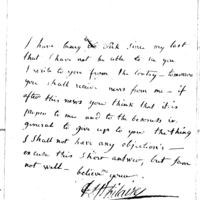 I have being so sick since my last
that I have not be able to see you
I write to you from the country – tomorrow
you shall receive news from me – if
after this news you think that it is
proper to me and to the
general to give up to you the thing
I shall not have any objections –
excuse this short answer, but I am
not well – believe yours